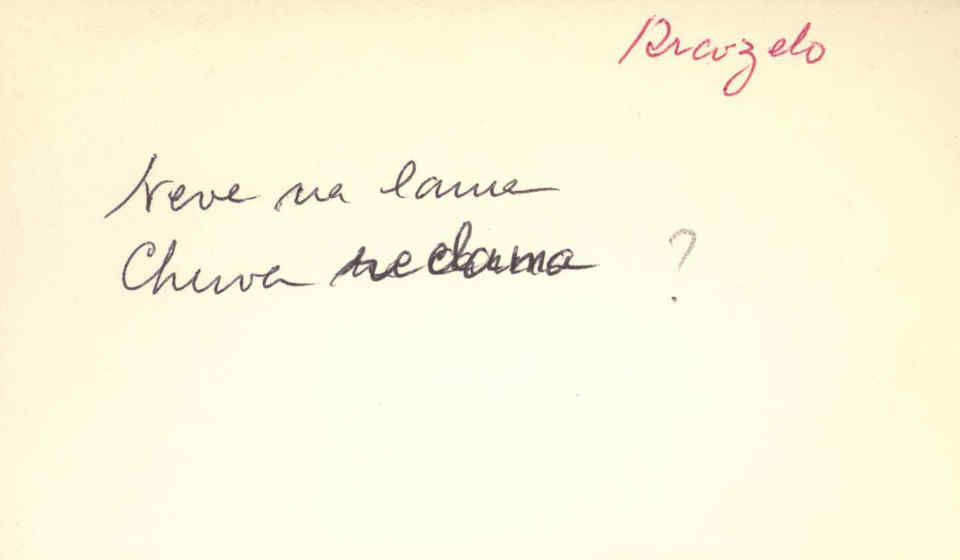 Arcozelo
Neve na lama
Chuva reclama ?